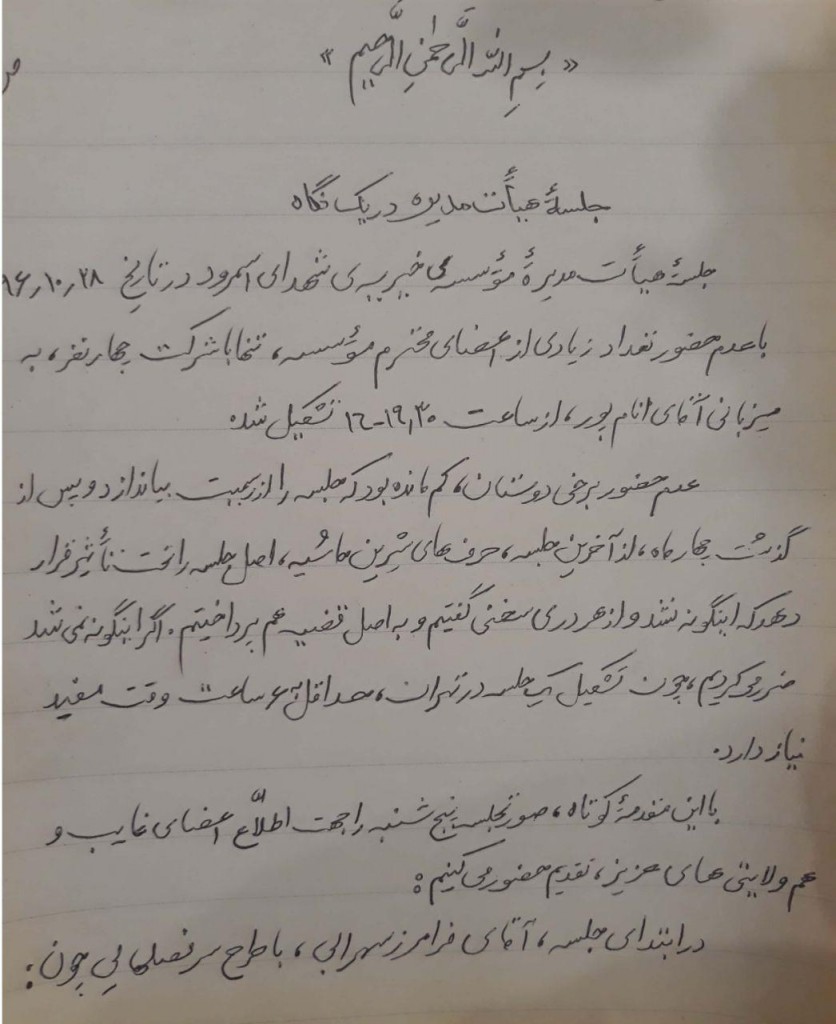 « بِسمِ اللهِ الرَّحمٰنِ الرَّحیم »
جلسهٔ هیأت مدیره در یک نگاه
جلسهٔ هیأت مدیرهٔ مؤسسه‌ی خیریه‌ی شهدای اسمرود در تاریخ ۹۶٫۱۰٫۲۸
با عدم حضور تعداد زیادی از اعضای محترم مؤسسه، تنها با شرکت چهار نفر، به
میزبانی آقای امام پور، از ساعت ۱۹٫۳۰-۱۶ تشکیل شد.
عدم حضور برخی دوستان، کم مانده بود که جلسه را از رسمیت بیاندازد و پس از
گذشت چهار ماه، از آخرین جلسه، حرف‌های شیرین حاشیه، اصل جلسه را تحت تأثیر قرار
دهد که اینگونه نشد و از هر دری سخنی گفتیم و به اصل قضیه هم پرداختیم. اگر اینگونه نمی شد
ضرر می کردیم، چون تشکیل یک جلسه در تهران، حداقل به ۶ ساعت وقت مفید
نیاز دارد.
با این مقدمهٔ کوتاه، صورتجلسه پنج شنبه را جهت اطلّاع اعضای غایب و
هم ولایتی های عزیز، تقدیم حضور می کنیم:
در ابتدای جلسه، آقای فرامرز سهرابی، با طرح سرفصلهایی چون: